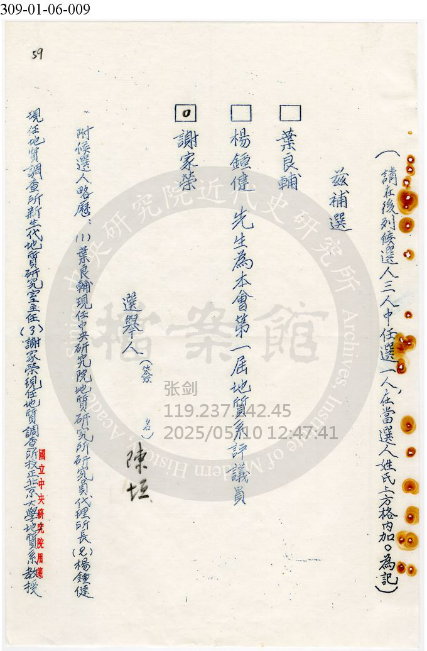 309-01-06-009
59
(請在後列候選人三人中任選一人,在當選人姓氏上方格內加○為記)
茲補選
葉良輔
楊鍾健 先生為本會第一屆地質系評議員
謝家榮
選舉人(簽名)陳垣
附候選人略歷:(1)葉良輔現任中央研究院地質研究所研究員代理所長(2)楊鍾健
現任地質調查所新生代地質研究室主任(3)謝家榮現任地質調查所技正北京大學地質系教授
國立中央研究院用箋
中央研究院近代史研究所
檔案館
Archives, Institute of Modern History, Academia Sinica
张剑
119.237.142.45
2025/05/10 12:47:41